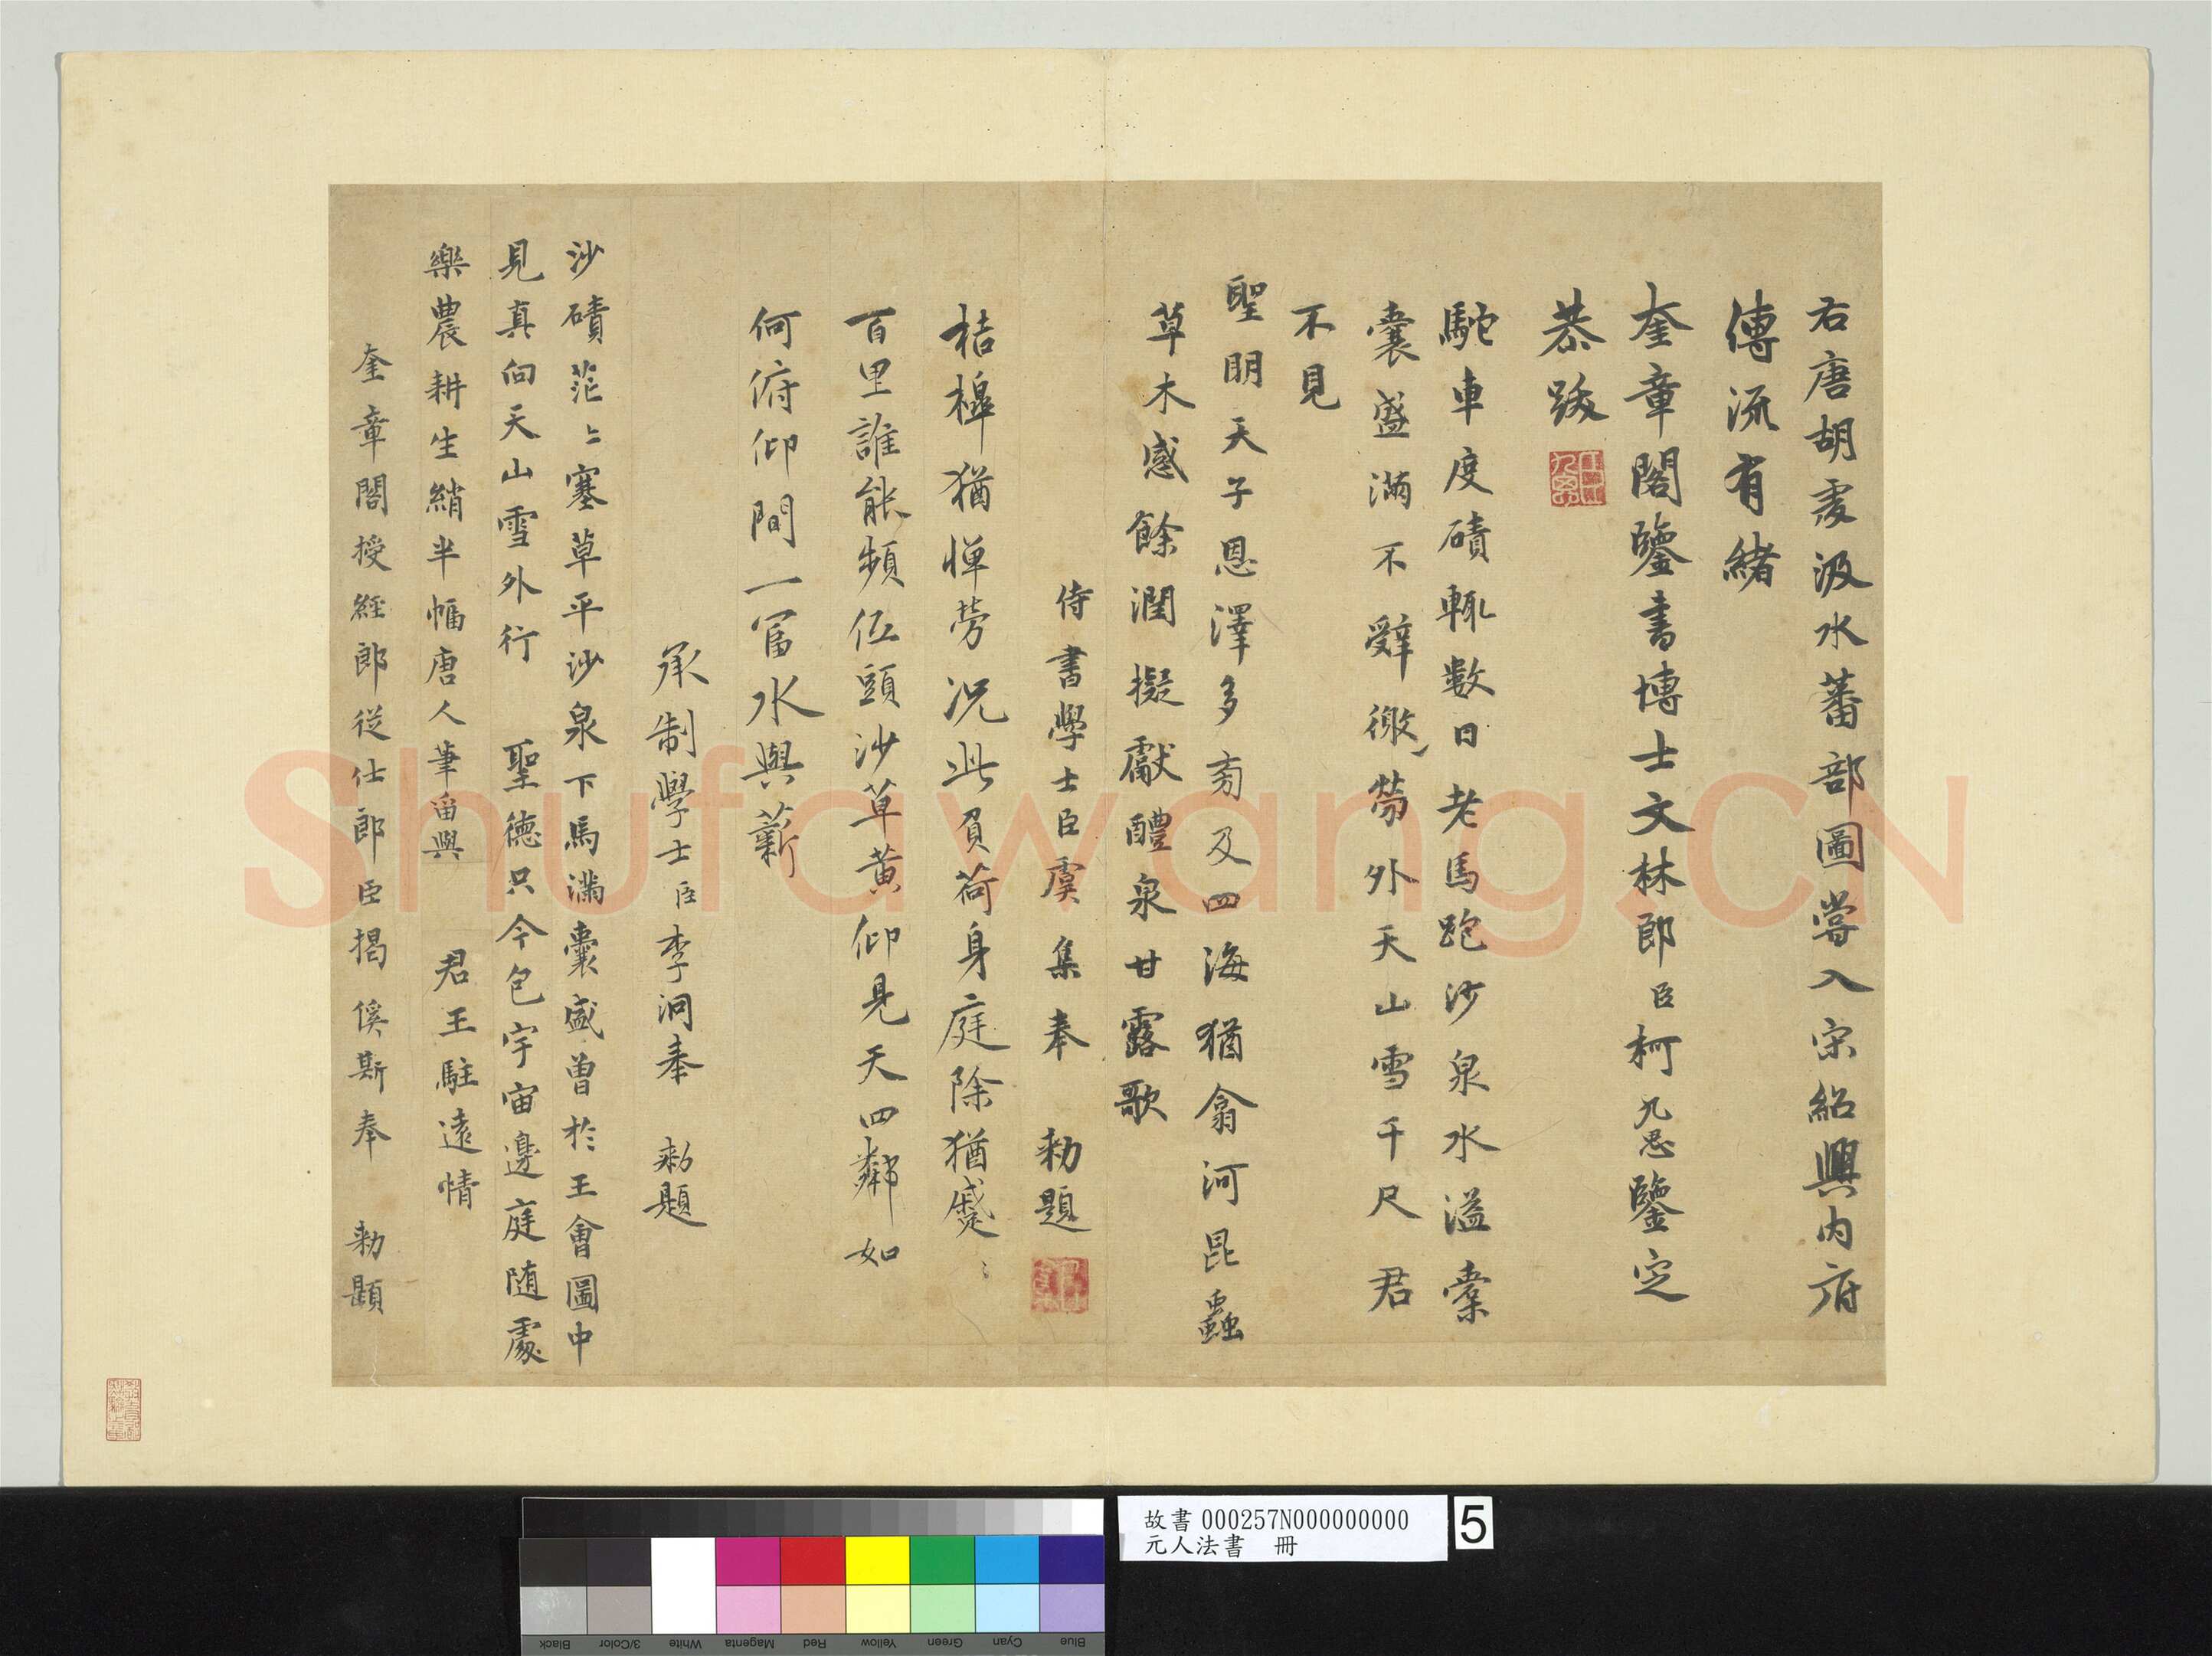 右唐胡虔汲水蕃部圖嘗入宋紹興内府
傳流有緒
奎章閣鑒書博士文林郎臣柯九思鑒定
恭跋
駝車度磧輒數日老馬跑沙泉水溢橐
囊盛滿不辭徼勞外天山雪千尺君
不見
聖明天子恩澤多旁及四海猶翕河昆蟲
草木感餘潤擬獻醴泉甘露歌
侍書學士臣虞集奉 勑題
桔槔猶憚勞況此負荷身庭除猶蹙〻
百里誰能頻低頭沙草黃仰見天四鄰如
何俯仰間一富水與薪
承制學士臣李泂奉 勑題
沙磧茫〻塞草平沙泉下馬滿囊盛曾於王會圖中
見真向天山雪外行 聖德只今包宇宙邊庭随處
樂農耕生綃半幅唐人筆留與 君王駐遠情
奎章閣授經郎從仕郎臣揭傒斯奉 勑題
Shufawang.CN
故書 000257N000000000
元人法書 冊
5
Black 3/Color White Magenta Red Yellow Green Cyan Blue